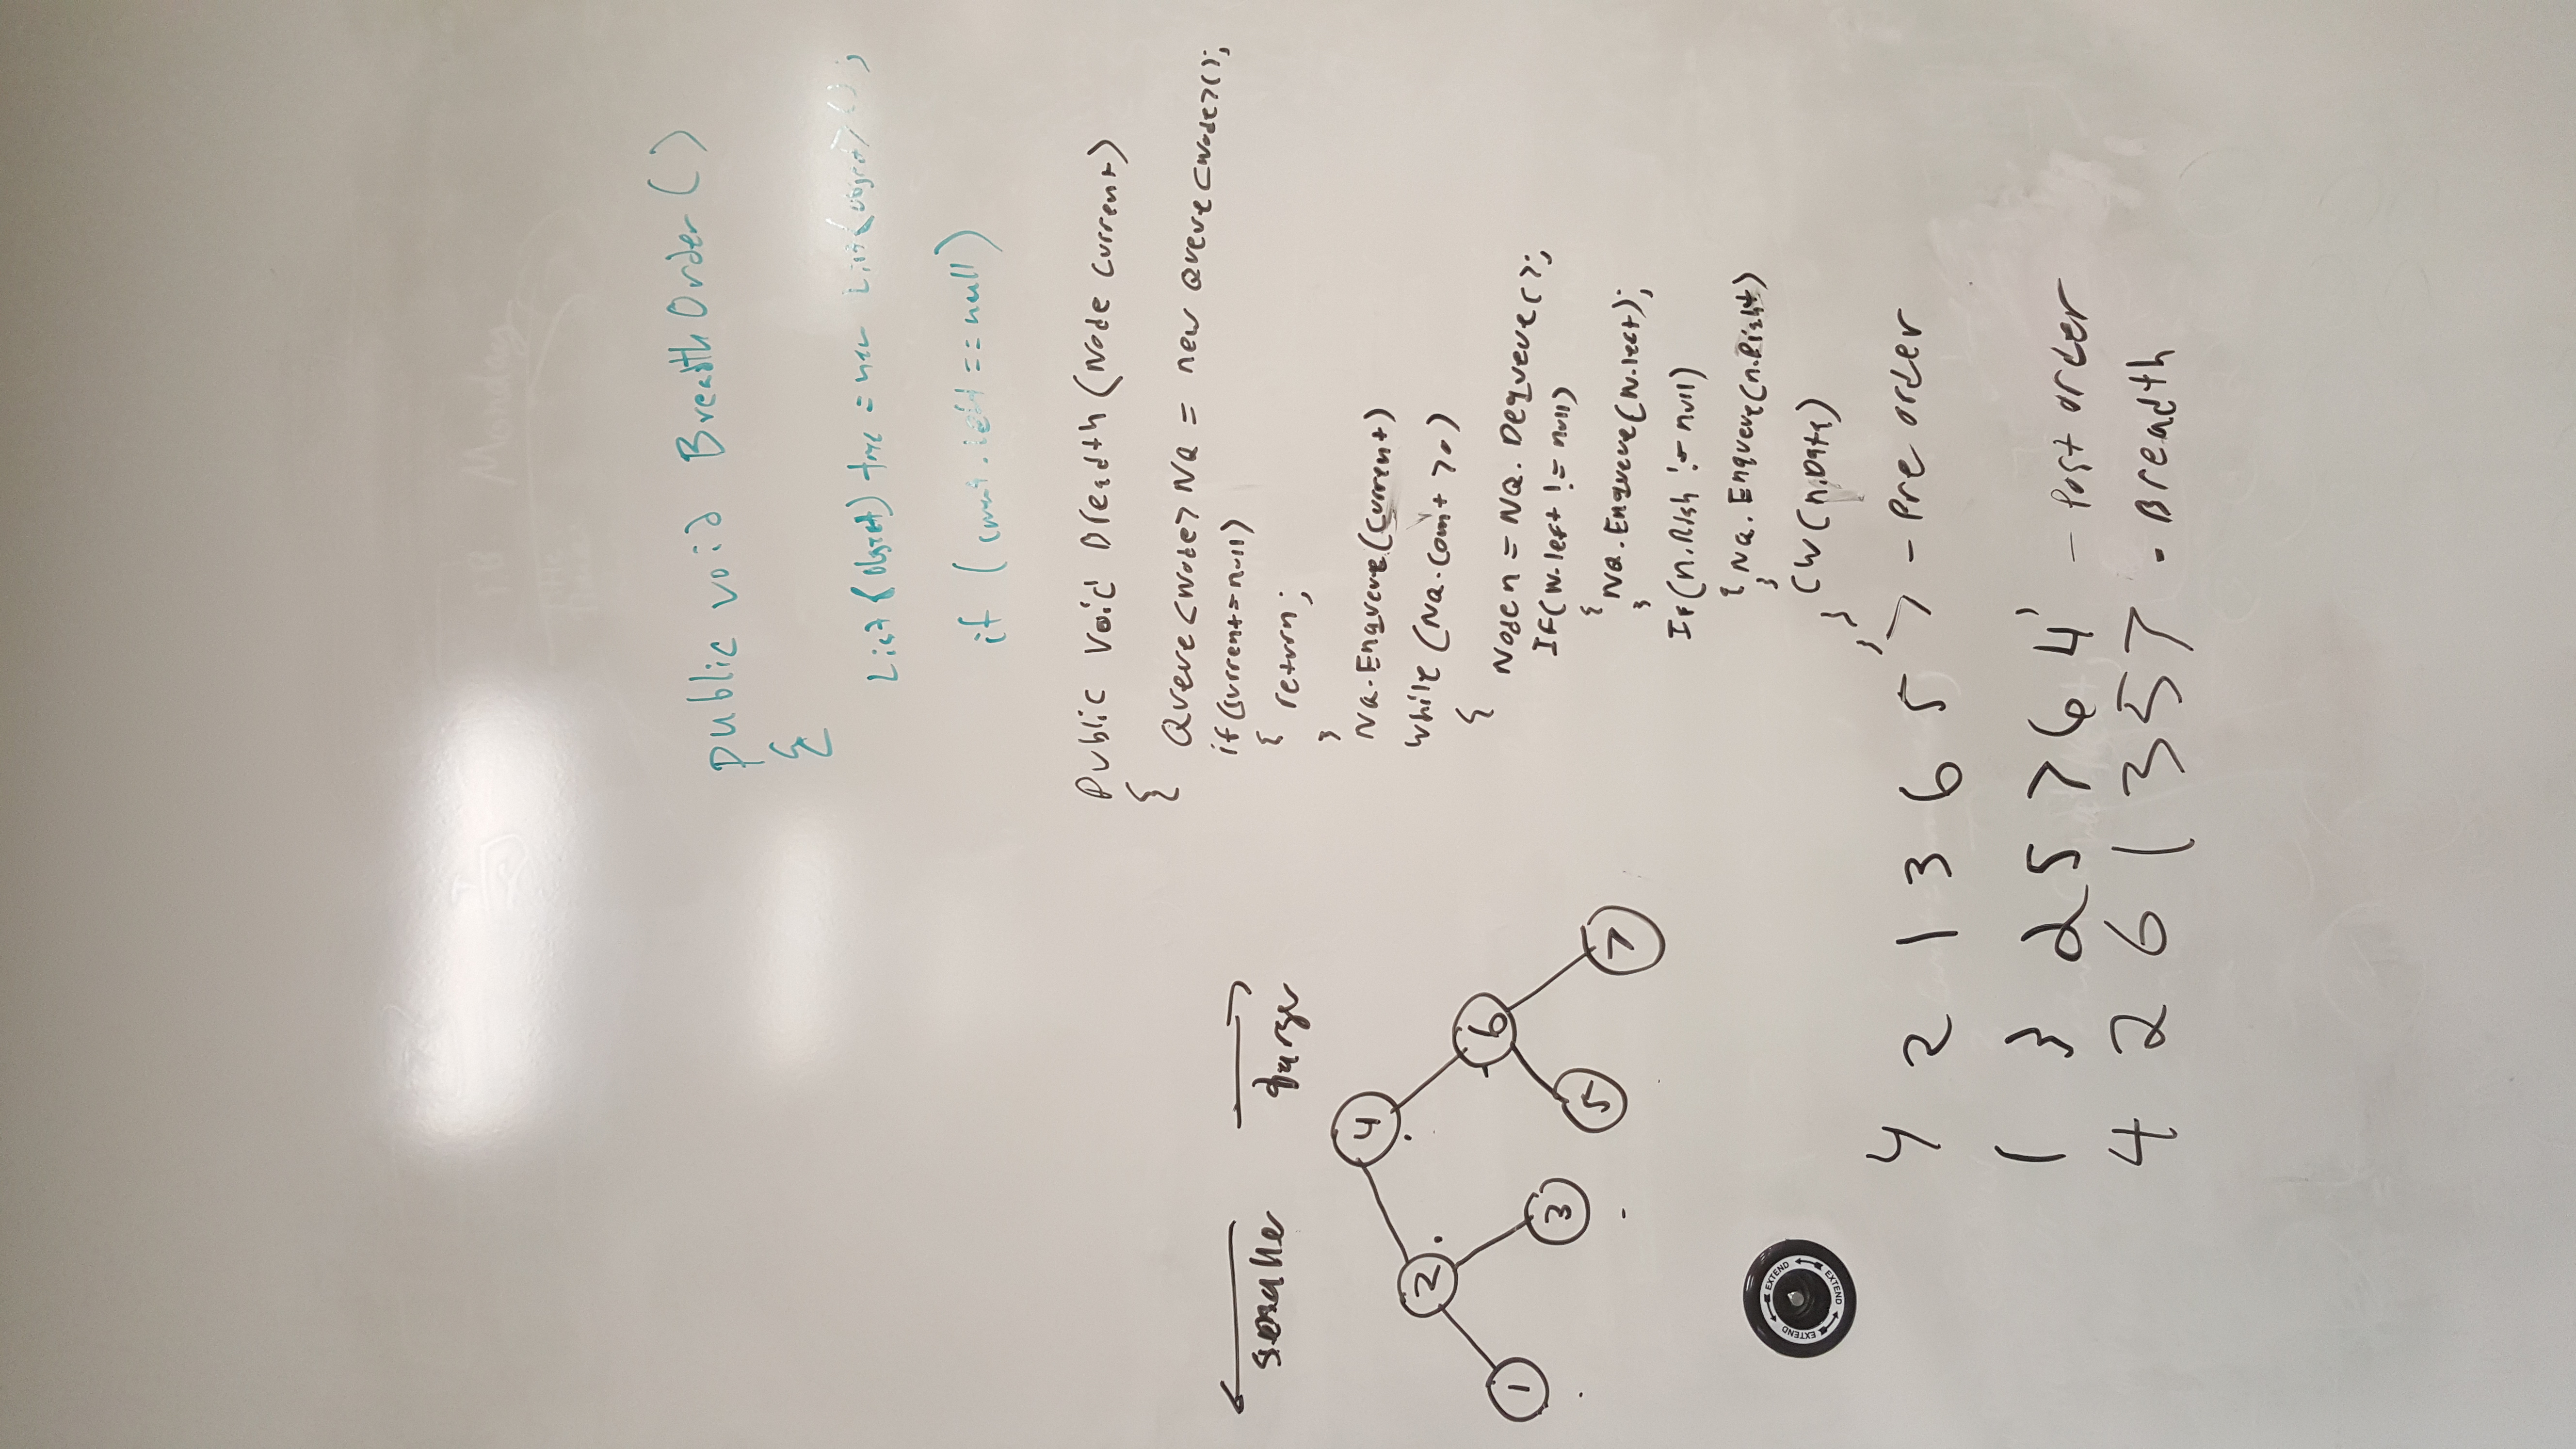 public void BreadthOrder()
{
List<object> tree = new List<object>();
if (current.left == null)
Public Void Breadth(Node Current)
{
Queue<Node> NQ = new Queue<Node>();
if(current==null)
{ return;
}
NQ.Enqueue(Current)
While (NQ.Count >0)
{
Node n = NQ. Dequeue();
IF(N.left != null)
{
NQ.Enqueue(N.left);
}
IF(n.Righ != null)
{ NQ. Enqueue(n.Right)
}
CW(n.Data)
}
}
smaller larger
4
2
6
1
3
5
7
EXTEND EXTEND EXTEND EXTEND
4 2 1 3 6 5 7 - Pre order
1 3 2 5 7 6 4 - Post order
4 2 6 1 3 5 7 - Breadth
Monday